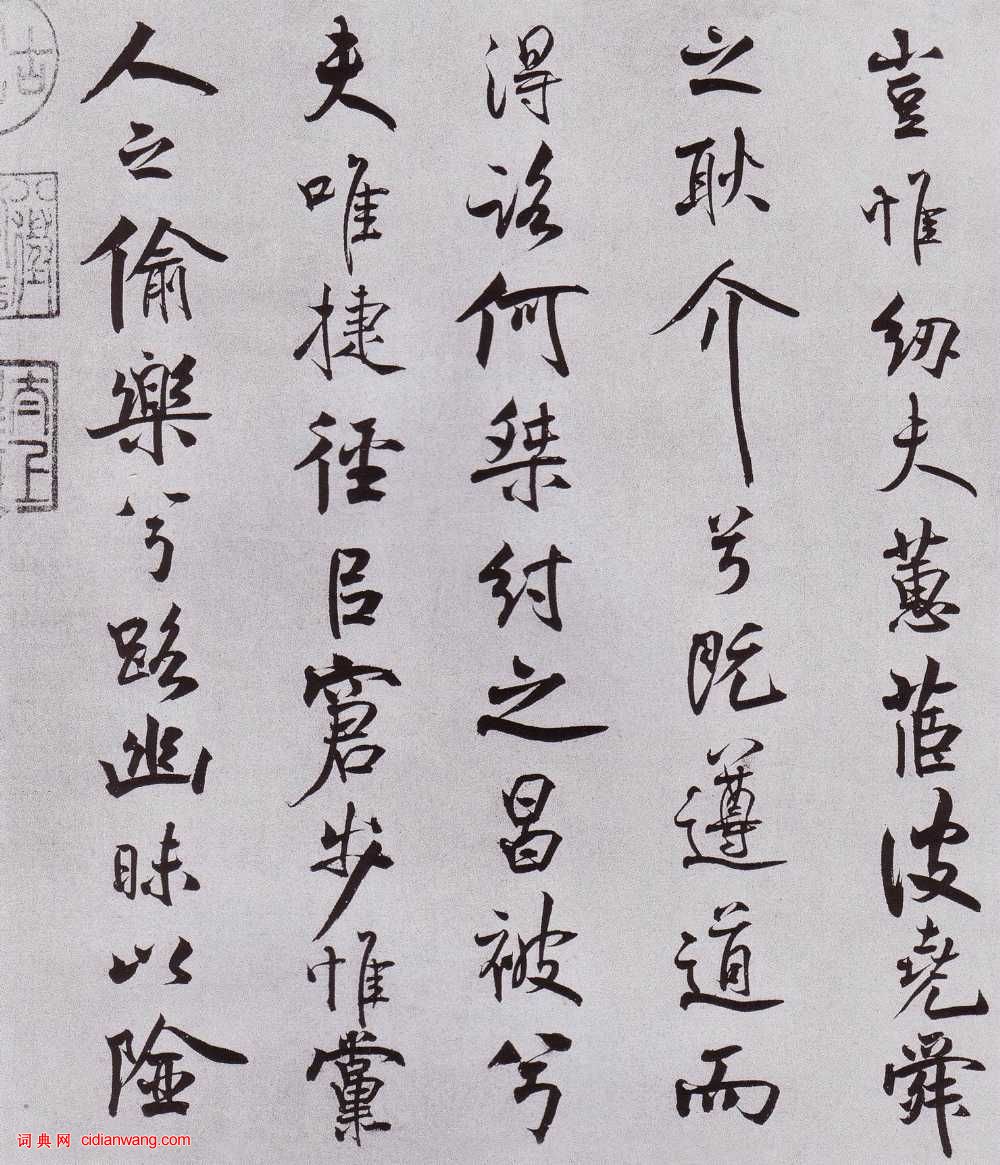 豈惟紉夫蕙茝彼堯舜
之耿介兮既遵道而
得路何桀紂之昌被兮
夫唯捷徑㠯窘步惟黨
人之偷樂兮路幽昧以險
词典网 cidianwang.com